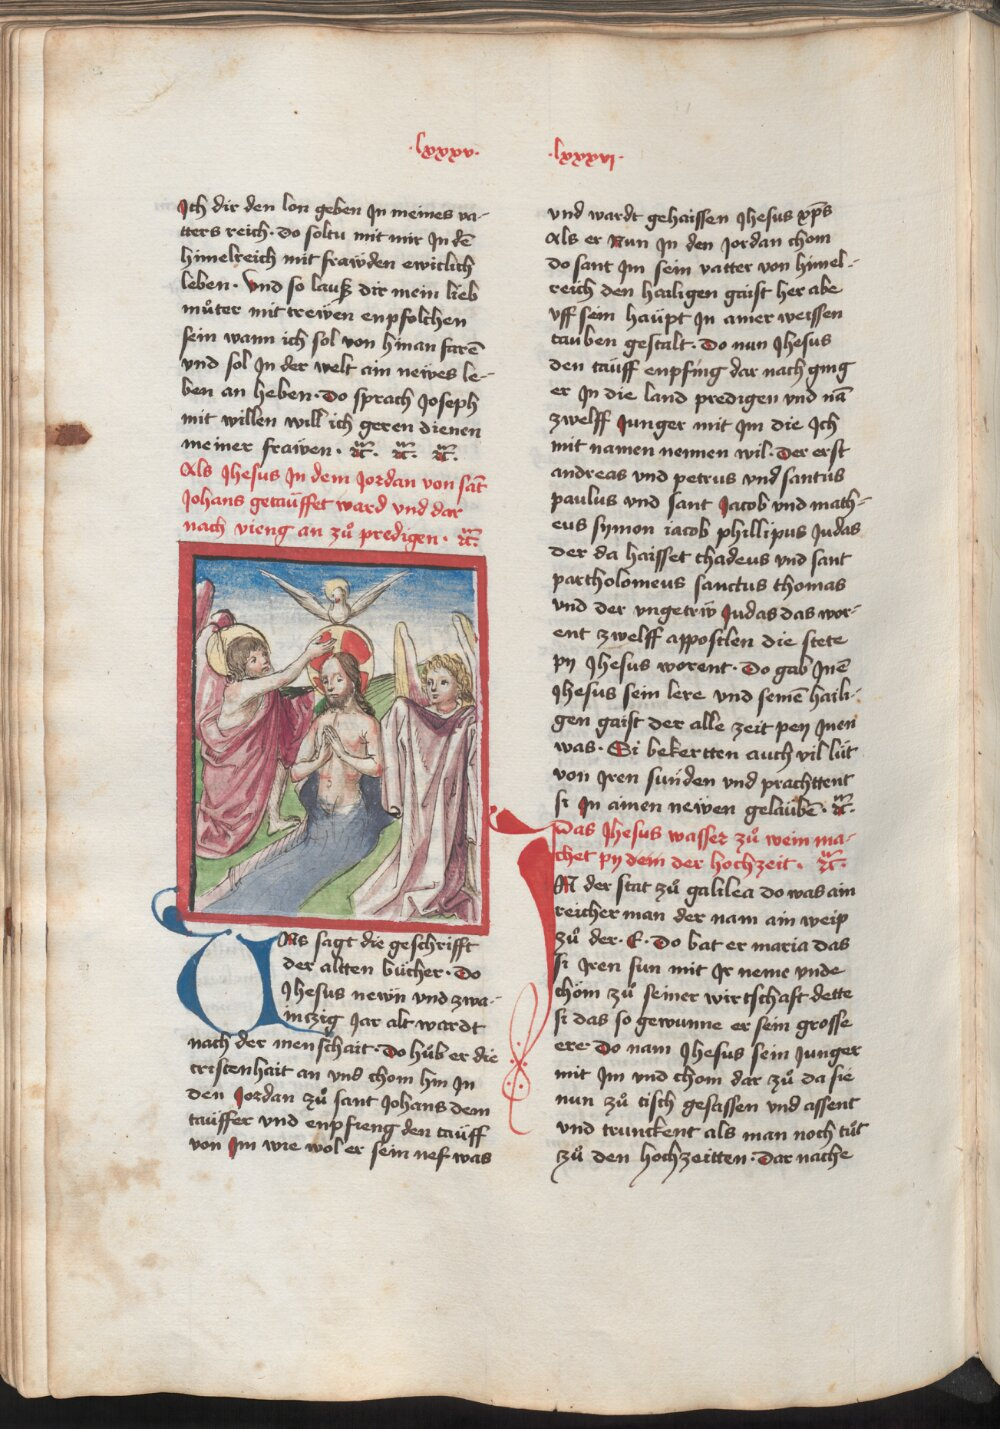 ·lxxxv·
Ich dir den lon geben In meines va-
tters reich· Do soltu mit mir In dē
himelreich mit fraẅden ewiclich
leben· Vnd so lauß dir mein lieb
můter mit trewen enpfolchen
sein wann ich sol von hinan farē
vnd sol In der welt ain newes le-
ben an heben· Do sprach Joseph
mit willen will ich geren dienen
meiner frawen· ⁊c̄· ⁊c̄· ⁊c̄·
Als Jhesus In dem Jordan von sāt
Johans getaüffet ward vnd dar
nach vieng an zů predigen· ⁊c̄·
Uns sagt die geschrifft
der altten bücher· Do
Jhesus newn vnd zwa-
inczig Jar alt wardt
nach der menschait· Do hůb er die
cristenhait an vnd chom hin In
den Jordan zů sant Johans dem
taüffer vnd enpfieng den taüff
von Im wie wol er sein nef was
·lxxxvi·
vnd wardt gehaissen Jhesus xp̄s
Als er Nun In den Jordan chom
do sant Im sein vatter von himel-
reich den hailigen gaist her abe
vff sein haüpt In ainer weissen
tauben gestalt· Do nun Jhesus
den taüff enpfing dar nach ging
er In die land predigen vnd nā
zwelff Junger mit Im die Ich
mit namen nennen wil· Der erst
andreas vnd petrus vnd santus
paulus vnd sant Jacob vnd math-
eus symon iacob phillipus Judas
der da haisset thadeus vnd sant
partholomeus sanctus thomas
vnd der vngetriẅ Judas das wor-
ent zwelff appostlen die stete
py Jhesus worent· Do gab Inē
Jhesus sein lere vnd seinē haili-
gen gaist der alle zeit pey Inen
was· Si bekertten auch vil lüt
von Iren sunden vnd prachttent
si In ainen newen gelauben· ⁊c̄·
Das Jhesus wasser zů wein ma-
chet py dem der hochzeit· ⁊c̄·
IN der stat zů galilea do was ain
reicher man der nam ain weip
zů der· E· Do bat er maria das
si Iren sun mit Ir neme vnde
chöm zů seiner wirtschaft dette
si das so gewunne er sein grosse
ere· Do nam Jhesus sein Junger
mit Im vnd chom dar zů da sie
nun zů tisch gesassen vnd assent
vnd trunckent als man noch tůt
zů den hochzeitten· Dar nache